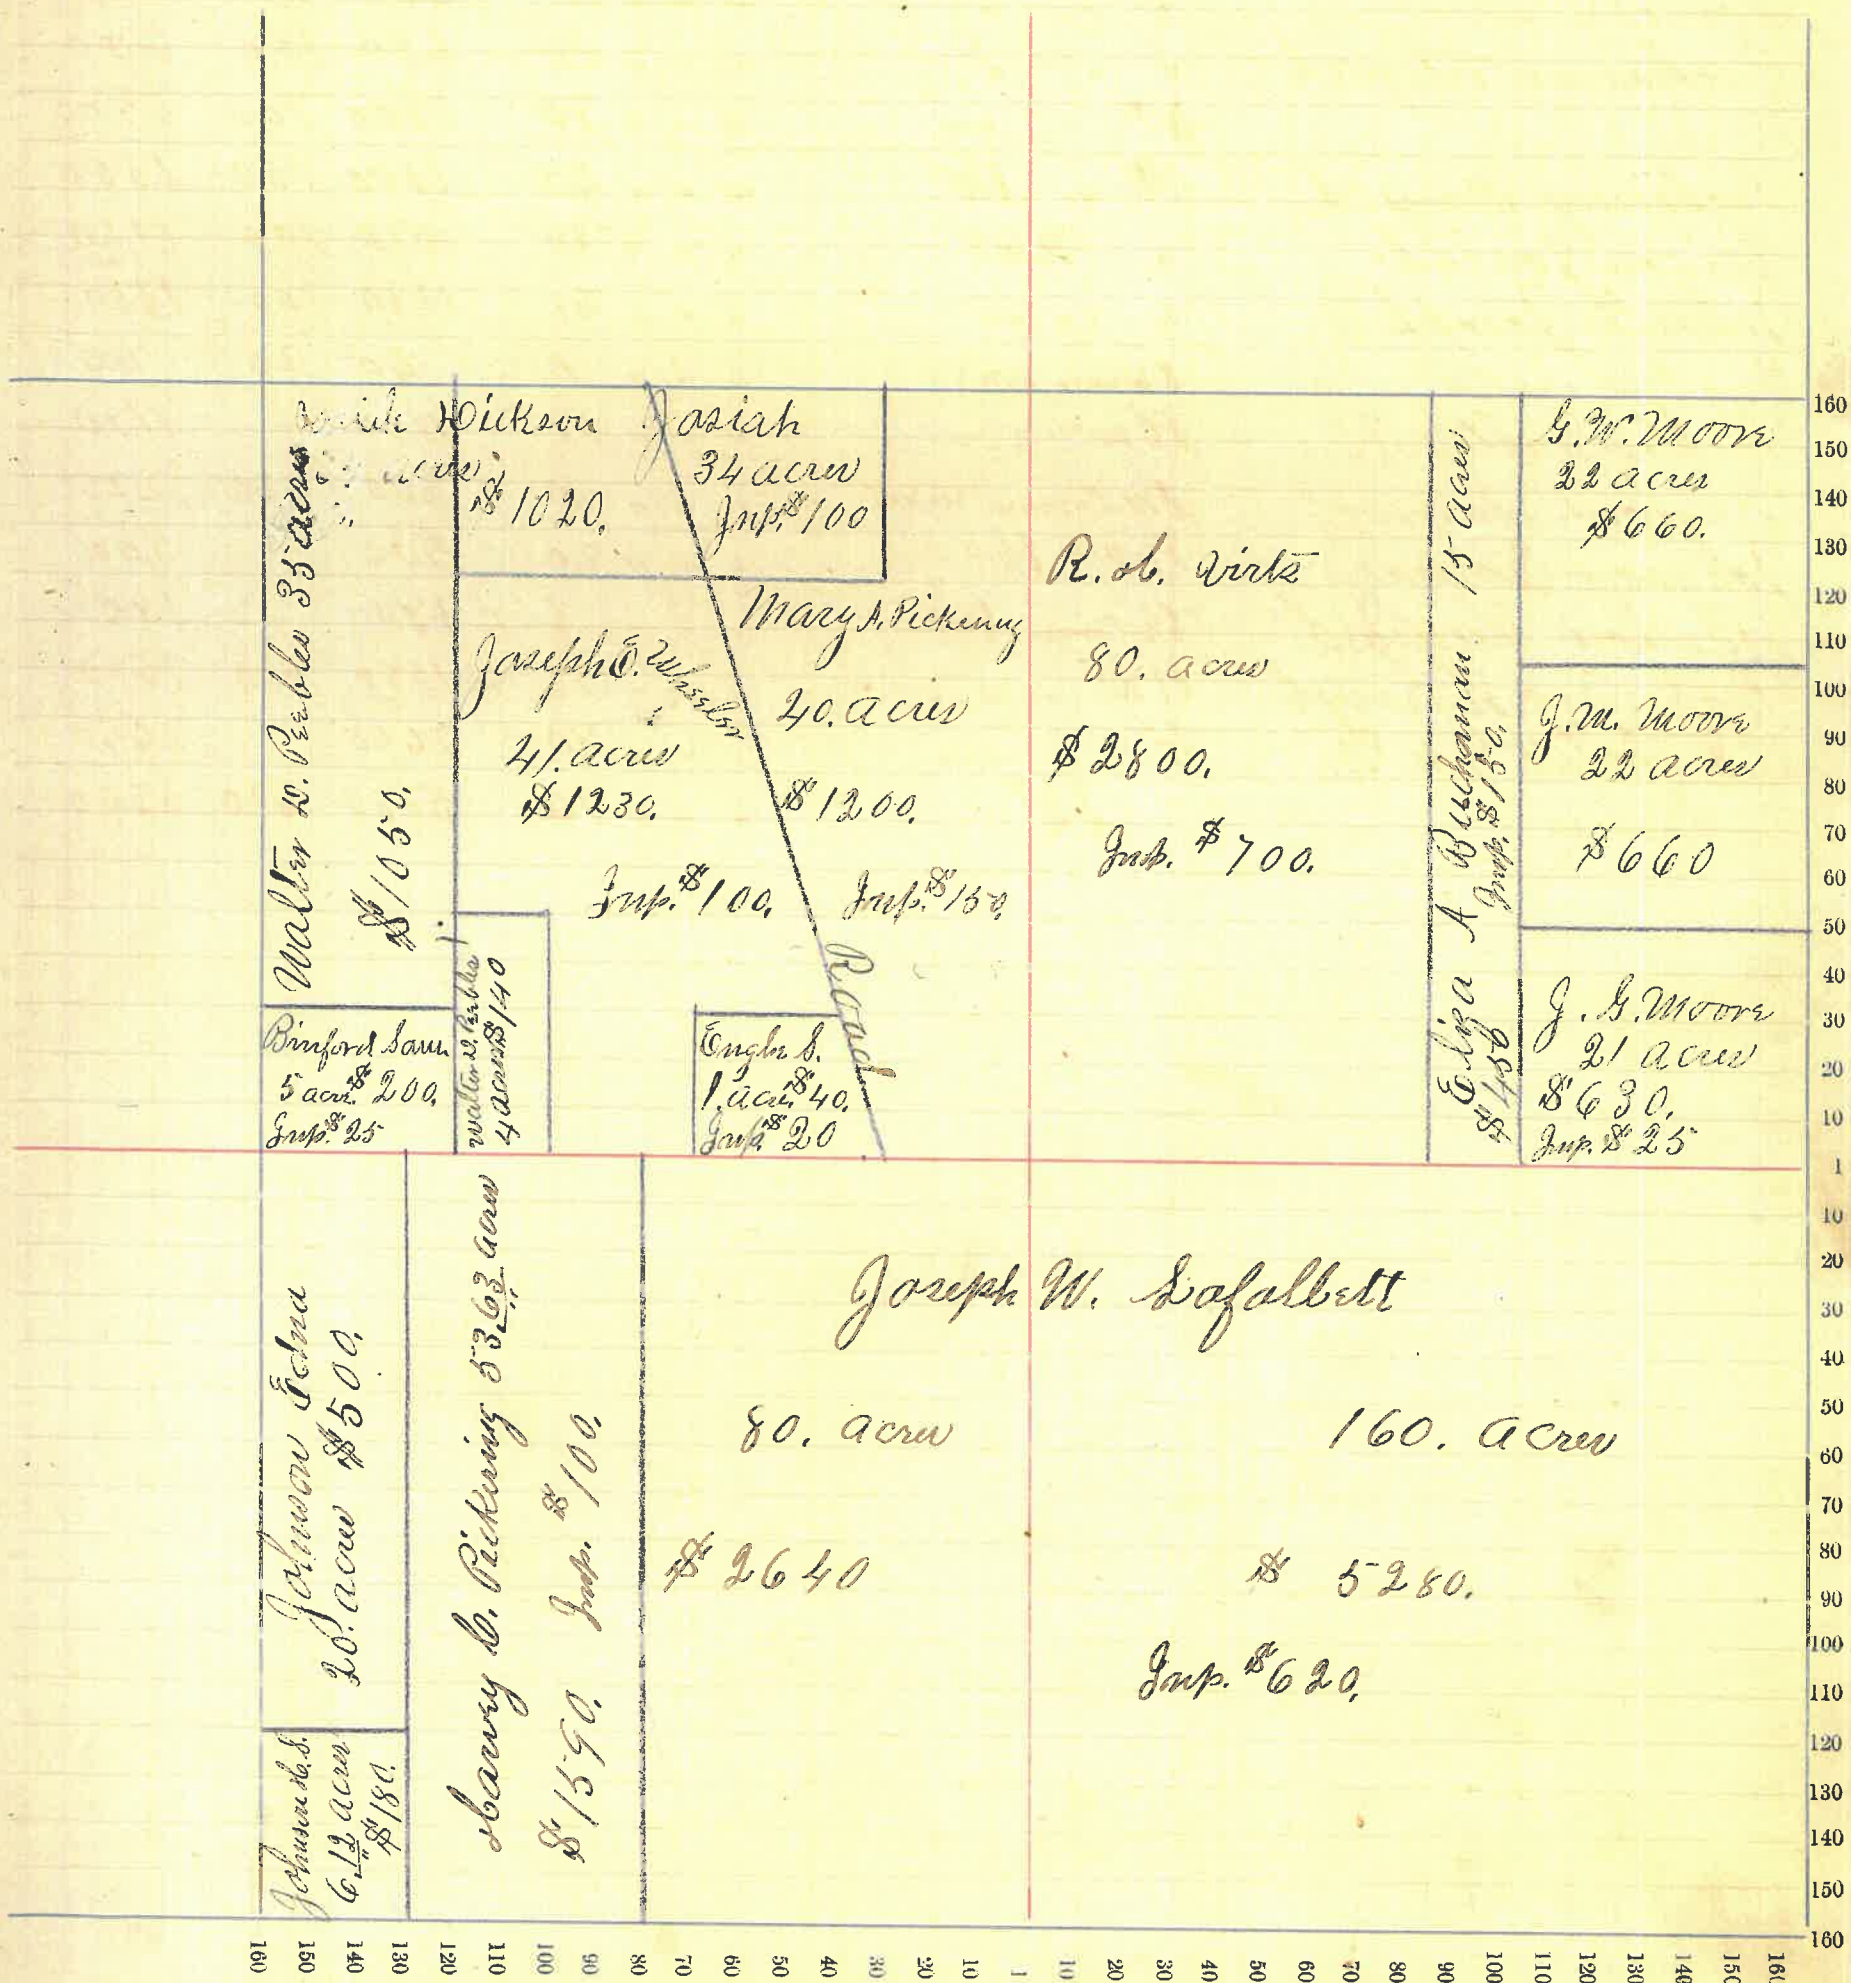 Dickson Josiah
34 acres
$1020. Imp. $100
Walter D. Peebles 35 acres
$1050.
Joseph E. Wheeler
41. acres
$1230.
Imp. $100.
Mary A. Pickering
40. acres
$1200.
Imp. $150.
Road
R. H. Virts
80. acres
$2800.
Imp. $700.
Eliza A Buchanan 15 acres
$450 Imp. $150.
G. W. Moore
22 acres
$660.
J. M. Moore
22 acres
$660
J. G. Moore
21 acres
$630.
Imp. $25
Binford Saml
5 acres $200.
Imp. $25
Walter D. Peebles
4 acres $140
Engle S.
1. acre $40.
Imp. $20
Johnson Edna
20. acres $500.
Johnson H. S.
6.12 acres
$180.
Harvey C. Pickering 53.63 acres
$1590. Imp. $100.
Joseph W. Lafollett
80. acres 160. acres
$2640 $5280.
Imp. $620.
160
150
140
130
120
110
100
90
80
70
60
50
40
30
20
10
1
10
20
30
40
50
60
70
80
90
100
110
120
130
140
150
160
160 150 140 130 120 110 100 90 80 70 60 50 40 30 20 10 1 10 20 30 40 50 60 70 80 90 100 110 120 130 140 150 160